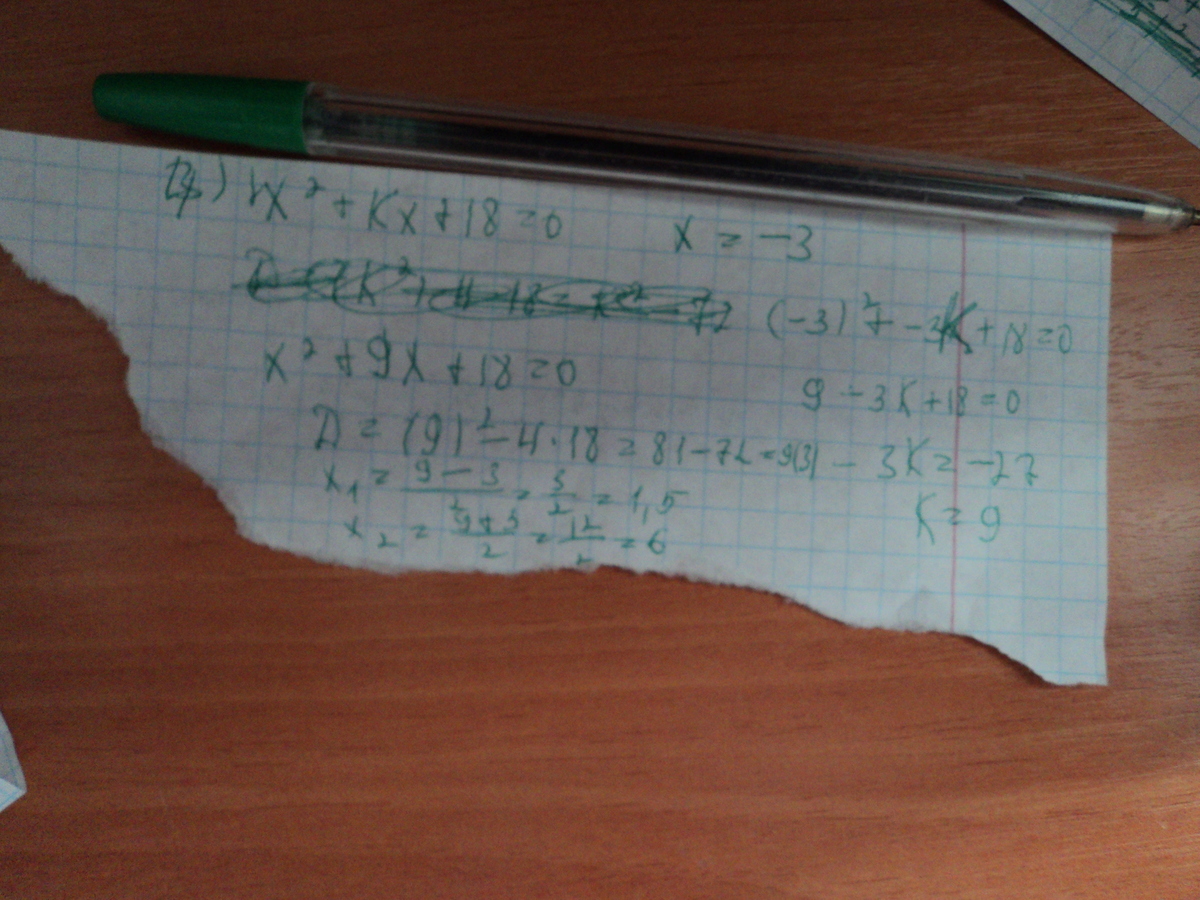 x² + Kx + 18 = 0    x = -3
(-3)² + -3K + 18 = 0
x² + 9x + 18 = 0
9 - 3K + 18 = 0
D = (9)² - 4·18 = 81 - 72 = 9(3)
- 3K = -27
x₁ = 9 - 3 / 2 = 3/2 = 1,5
K = 9
x₂ = 9 + 3 / 2 = 12/2 = 6